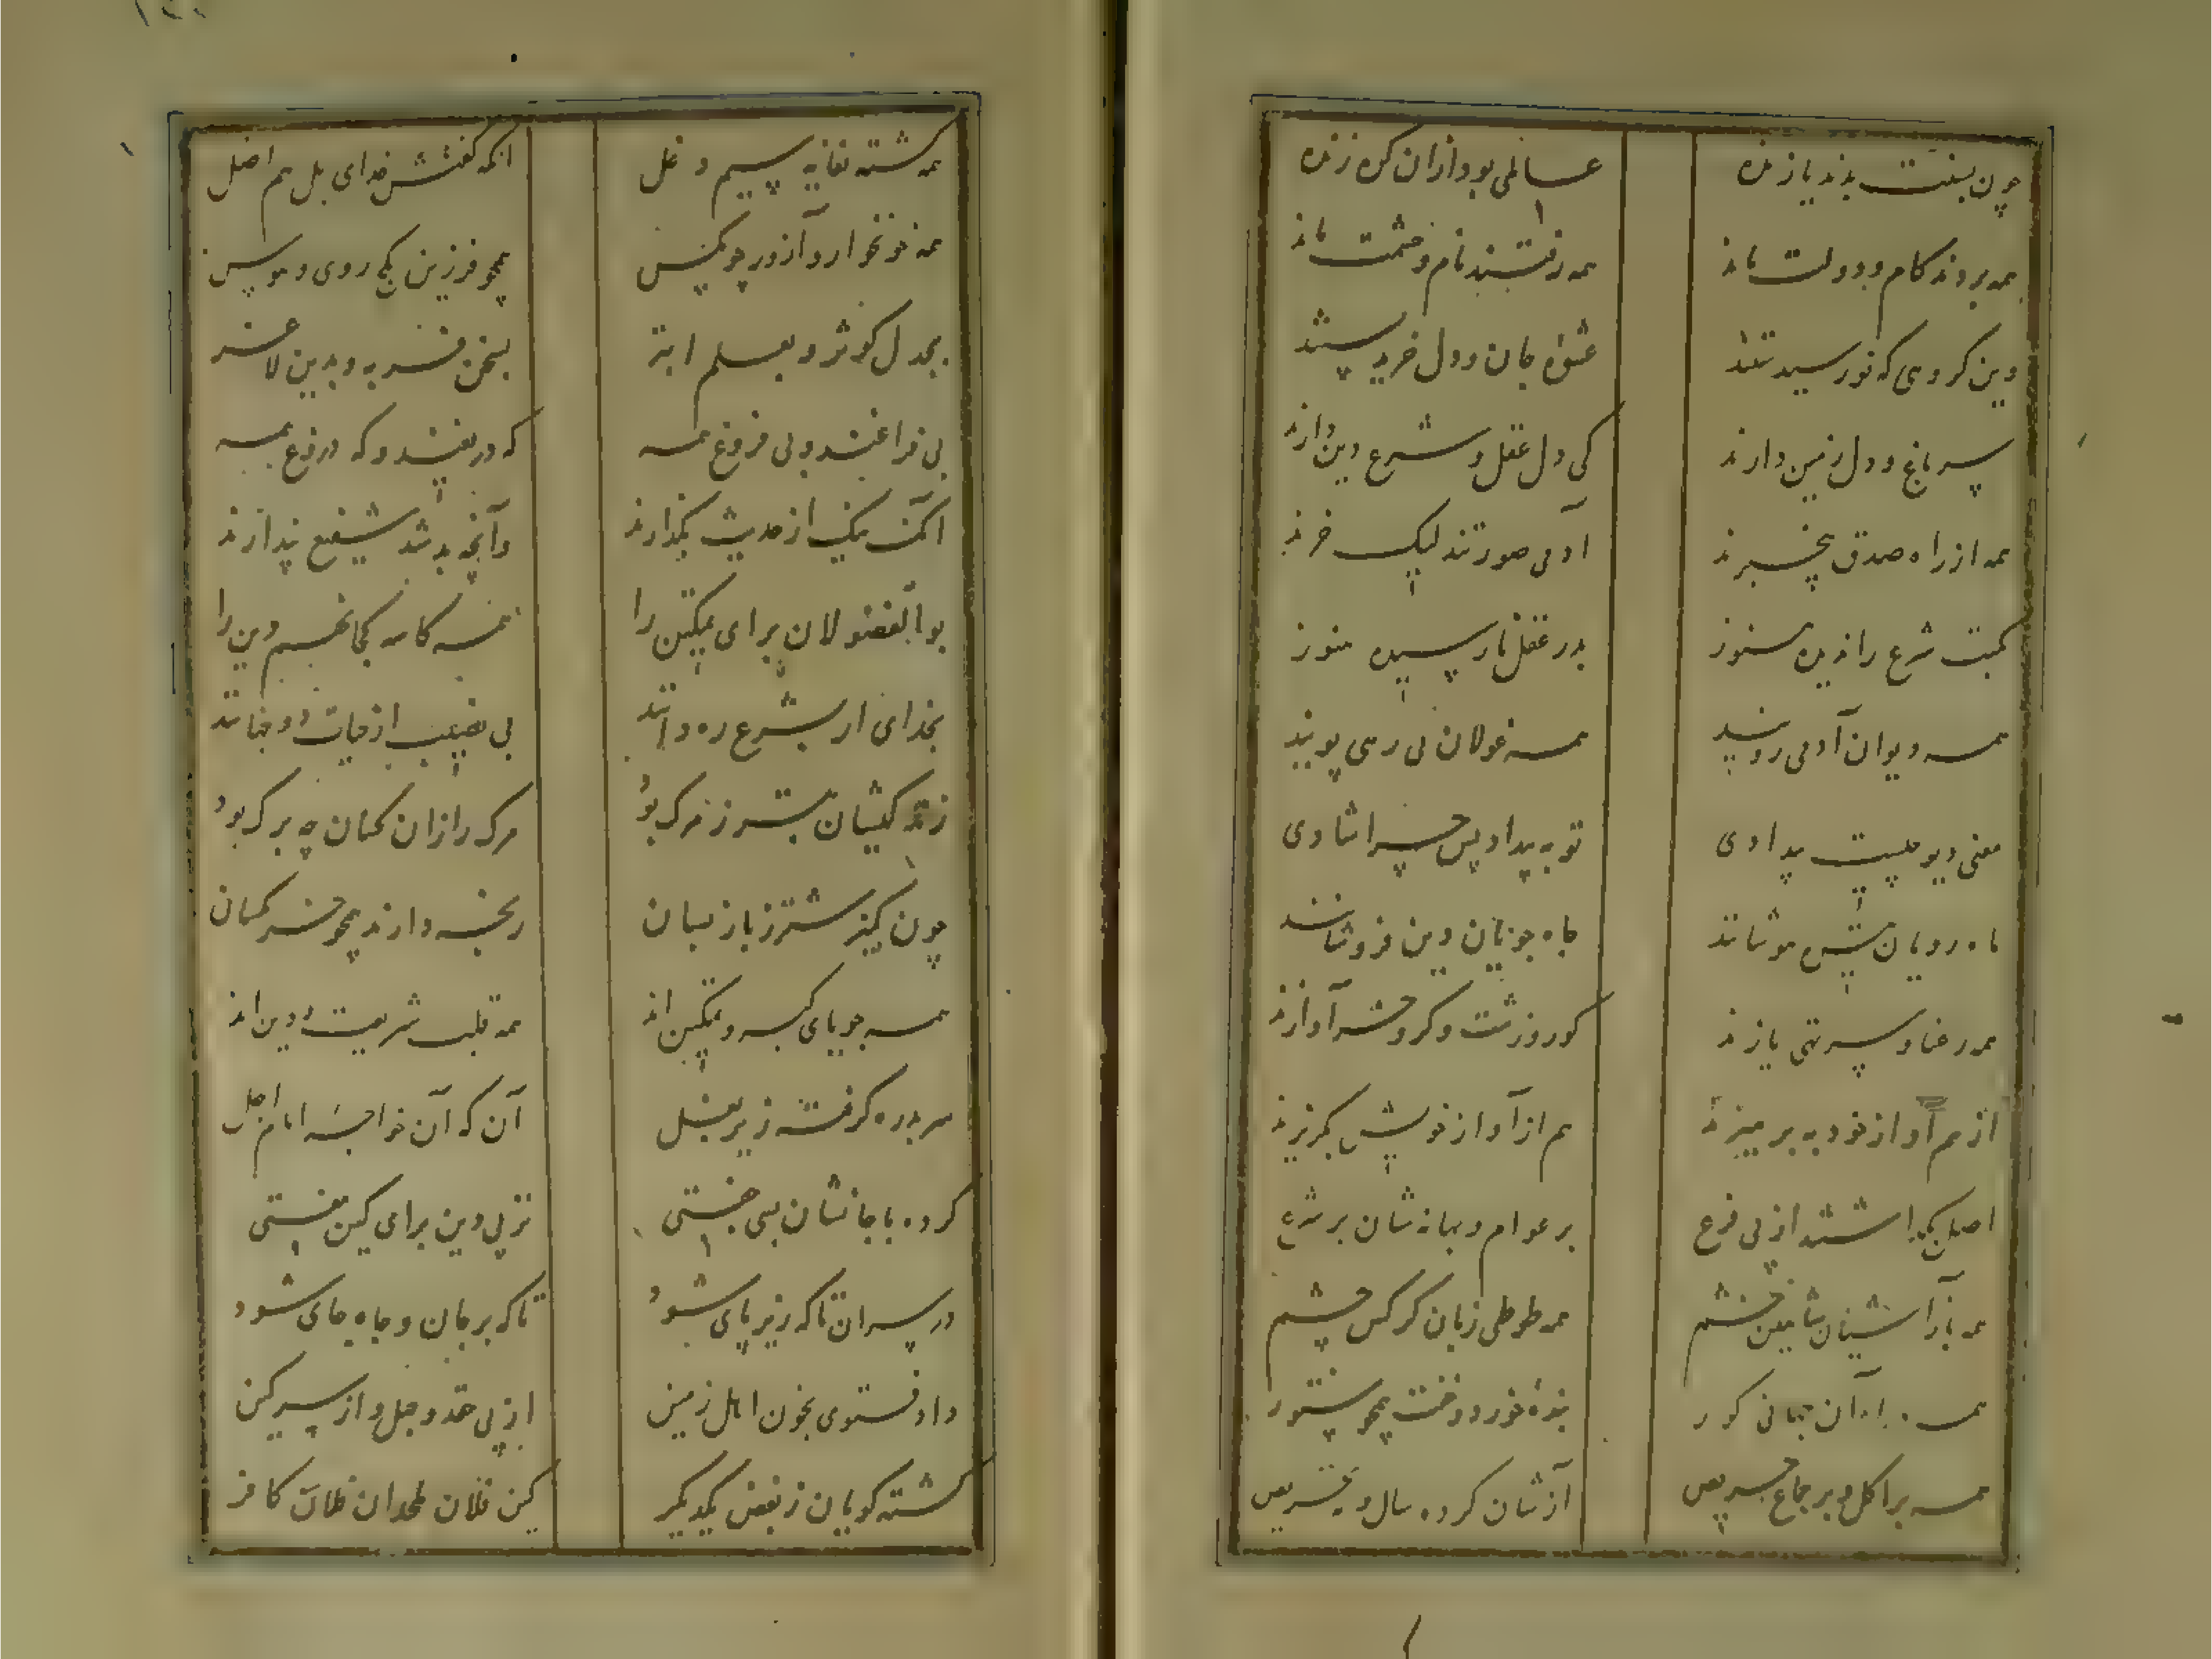 چون بسنت بدند یا زنده عالمی بود ازان کره زنده
همه بردند کام و دولت ماند همه رفتند نام و حشمت ماند
وین کروهی که نو رسیدستند عشوه جان و دل خریدستند
سر باغ و دل زمین دارند کی دل عقل و شرع و دین دارند
همه از راه صدق بیخبرند آدمی صورتند لیک خرند
کمت شرع را ندیده هنوز بدر عقل نارسیده هنوز
همه دیوان آدمی رویند همه غولان بی رهی پویند
معنی دیو چیست بیدادی تو به بیداد پس چرا شادی
ماه رویان تیره هوشانند جاه جویان دین فروشانند
همه رعنا و سر تهی یازند کور و زشت و کر و خشر آوازند
از هم آواز خود به برمیزند هم از آواز خویش بکریزند
اصل بکذاشتند از پی فرع بر عوام و بهانه شان بر شرع
همه باز آشیان شاهین خشم همه طوطی زبان کرکس چشم
همه ... آن جهانی کور بنده خورد و خفت همچو ستور
همه بر اکل و بر جماع حریص آز شان کرده سال و مه تحریص
همه کشته نفایه سیم و دغل آنکه کفتش خدای بل هم اضل
همه خونخوار و آزور چو مکس همچو فرزین کج روی و هوس
بجدل کوثر و بعلم ابتر بسخن فربه و بدین لاغر
بی فراغند و بی فروغ همه که دریغند و که دروغ همه
آنکه نیک از حدیث بکذارند وآنچه بد شد شفیع پندارند
بوالفضولان برای تمکین را همه کاسه کجا نهم دین را
بخدای ار بشرع ره دانند بی نصیب از حیات دوجهانند
زنده کیشان بتر ز مرک بود مرک را زان کسان چه برک بود
چون کیز شتر ز باز نسان ریخسه دارند همچو خر کسان
همه جویای کبر و تمکین اند همه قلب شریعت و دین اند
هر بدره کرفته زیر بغل آن که آن خواجه امام اجل
کرده با جانشان سی خفتی نز پی دین برای کین مفتی
در سر آن تا که زیر پای شود تا که بر جان و جاه جای شود
داد فتوی بخون اهل زمین از پی حقد و جهل و از سر کین
کشته کویان ز بغض یکدیکر کین فلان ملحد آن فلان کافر